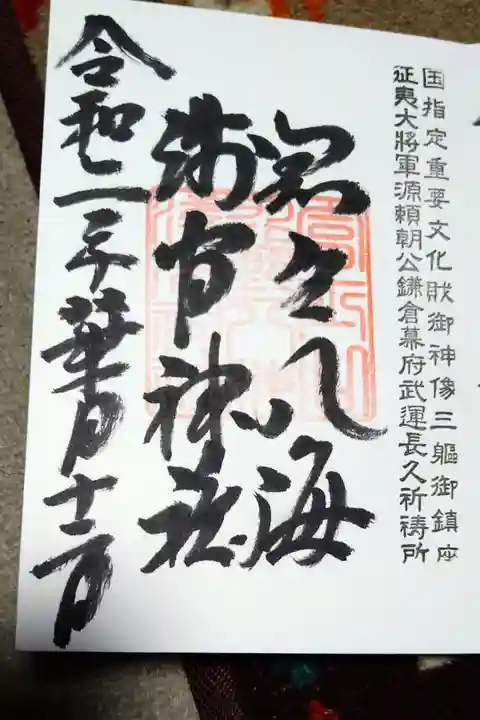 国指定重要文化財御神像三軀御鎮座
征夷大將軍源頼朝公鎌倉幕府武運長久祈祷所
八海
浅間神社
令和二年葉月十二日